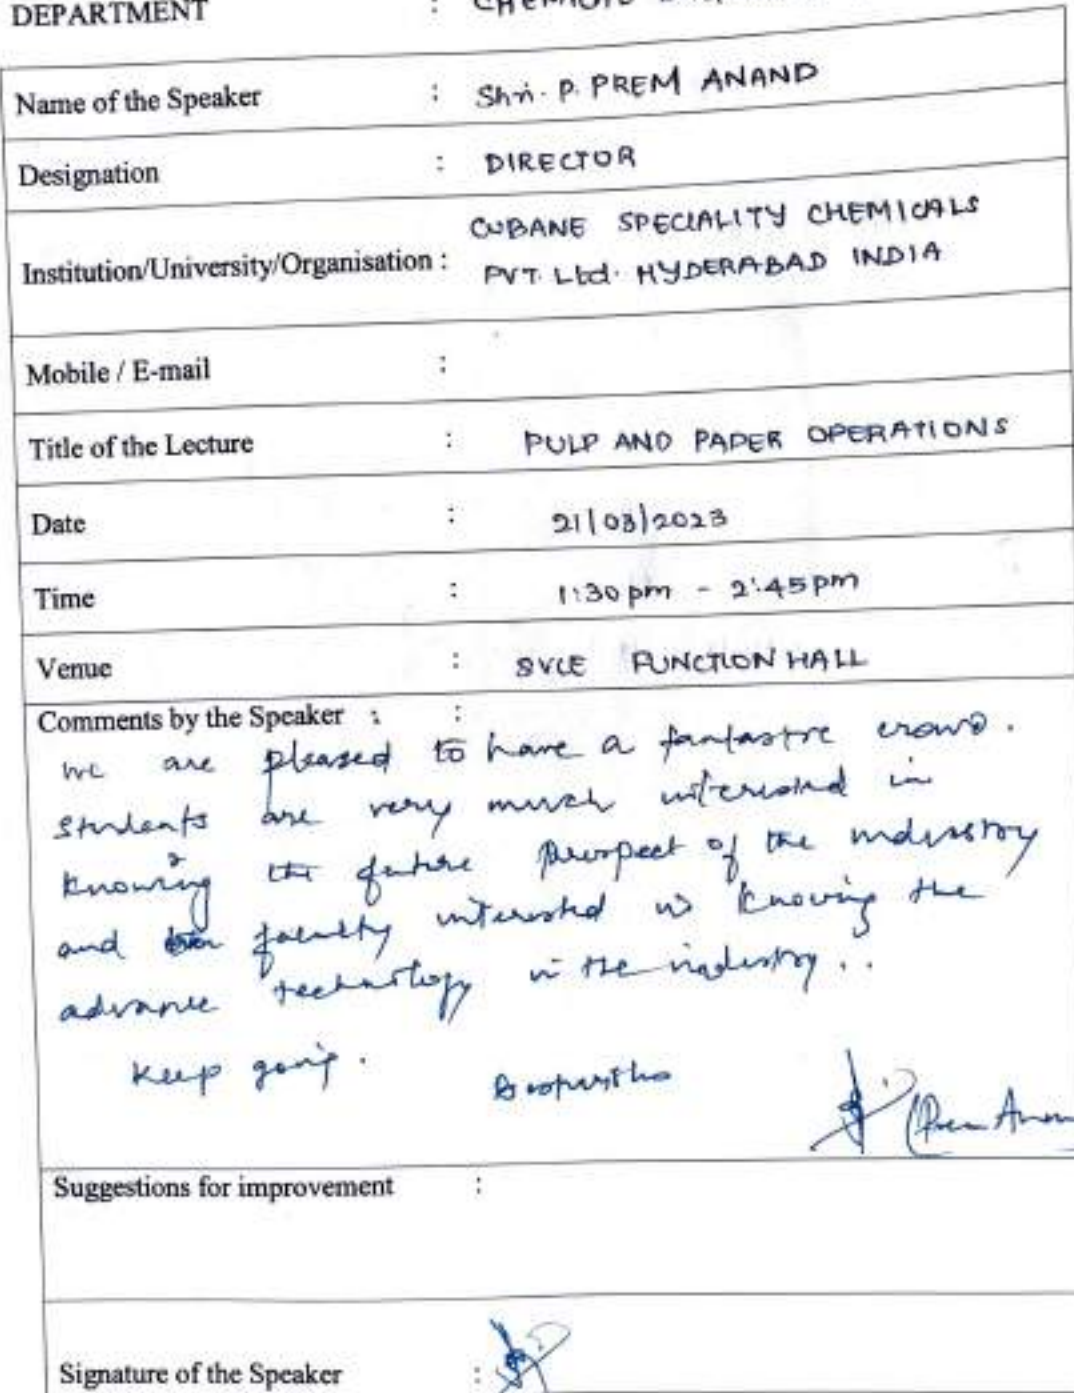 DEPARTMENT :
Name of the Speaker : Shri. P. PREM ANAND
Designation : DIRECTOR
CUBANE SPECIALITY CHEMICALS
Institution/University/Organisation : PVT. Ltd. HYDERABAD INDIA
Mobile / E-mail :
Title of the Lecture : PULP AND PAPER OPERATIONS
Date : 21/03/2023
Time : 1:30 pm - 2:45 pm
Venue : SVCE FUNCTION HALL
Comments by the Speaker : :
We are pleased to have a fantastic crowd.
Students are very much interested in
knowing the future prospect of the industry
and faculty interested in knowing the
advance technology in the industry..
Keep going.
(Prem
Suggestions for improvement :
Signature of the Speaker :